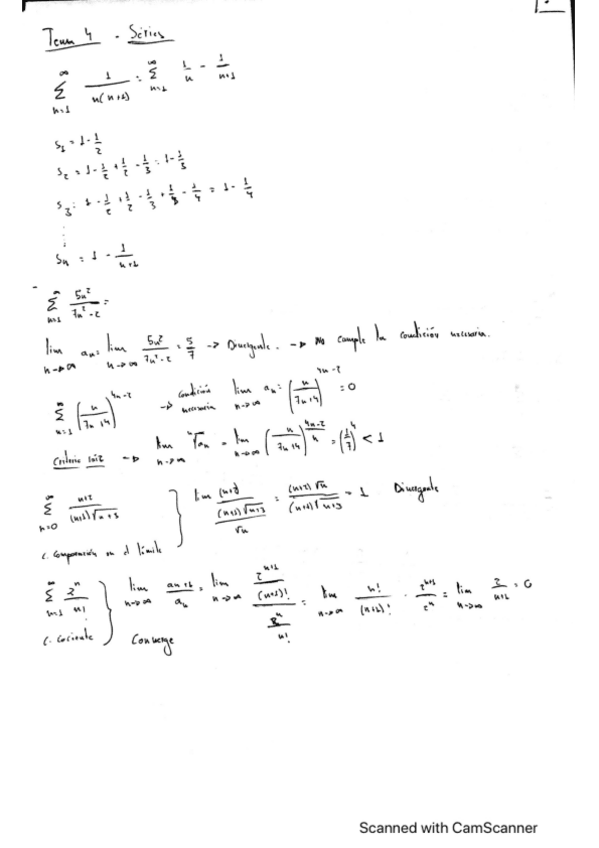 Tema 4 - Séries
∞ Σ n=1 1/(n(n+1)) = ∞ Σ n=1 1/n - 1/(n+1)
S₁ = 1 - 1/2
S₂ = 1 - 1/2 + 1/2 - 1/3 = 1 - 1/3
S₃ = 1 - 1/2 + 1/2 - 1/3 + 1/3 - 1/4 = 1 - 1/4
Sn = 1 - 1/(n+1)
∞ Σ n=1 5n²/(7n²-2) =
lim n→∞ an = lim n→∞ 5n²/(7n²-2) = 5/7 → Divergente. → No cumple la condición necesaria.
∞ Σ n=1 (n/(7n+4))^(4n-2) → Condición necesaria lim n→∞ an = (n/(7n+4))^(4n-2) = 0
Criterio raiz → lim n→∞ ⁿ√an = lim n→∞ (n/(7n+4))^((4n-2)/n) = (1/7)^4 < 1
∞ Σ n=0 √n+3 } lim √n+3 / √n = √n / √n+3 = 1 Divergente
C. Comparación en el límite
∞ Σ n=1 2^n/n! } lim n→∞ an+1/an = lim n→∞ 2^(n+1)/(n+1)! / 2^n/n! = lim n→∞ n!/(n+1)! · 2^(n+1)/2^n = lim n→∞ 2/(n+1) = 0
C. Cociente Converge
Scanned with CamScanner